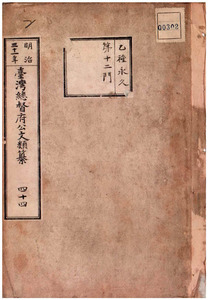 00302
乙種永久
第十二門
明治
三十一年
臺灣總督府公文類纂
四十四